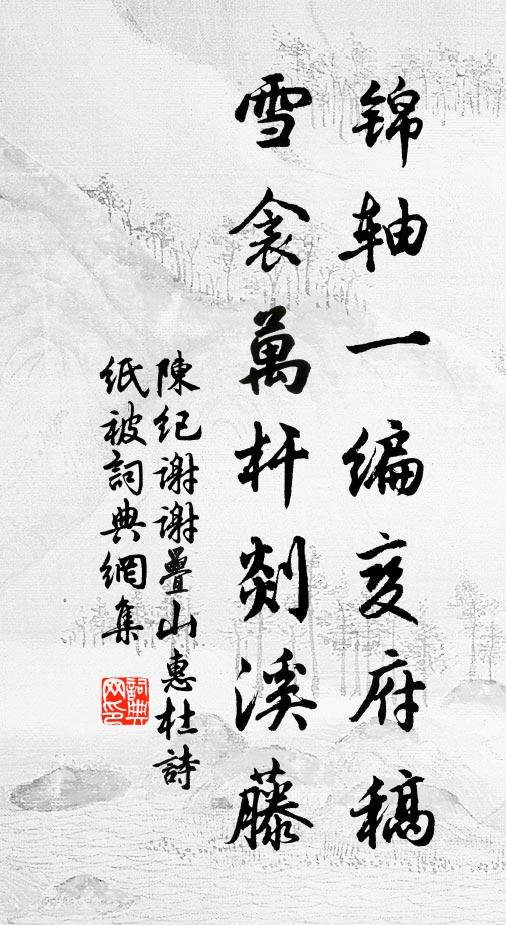 錦軸一編夔府稿
雪衾萬杵剡溪藤
陳纪谢谢疊山惠杜詩
紙被詞典網集
詞典
网印